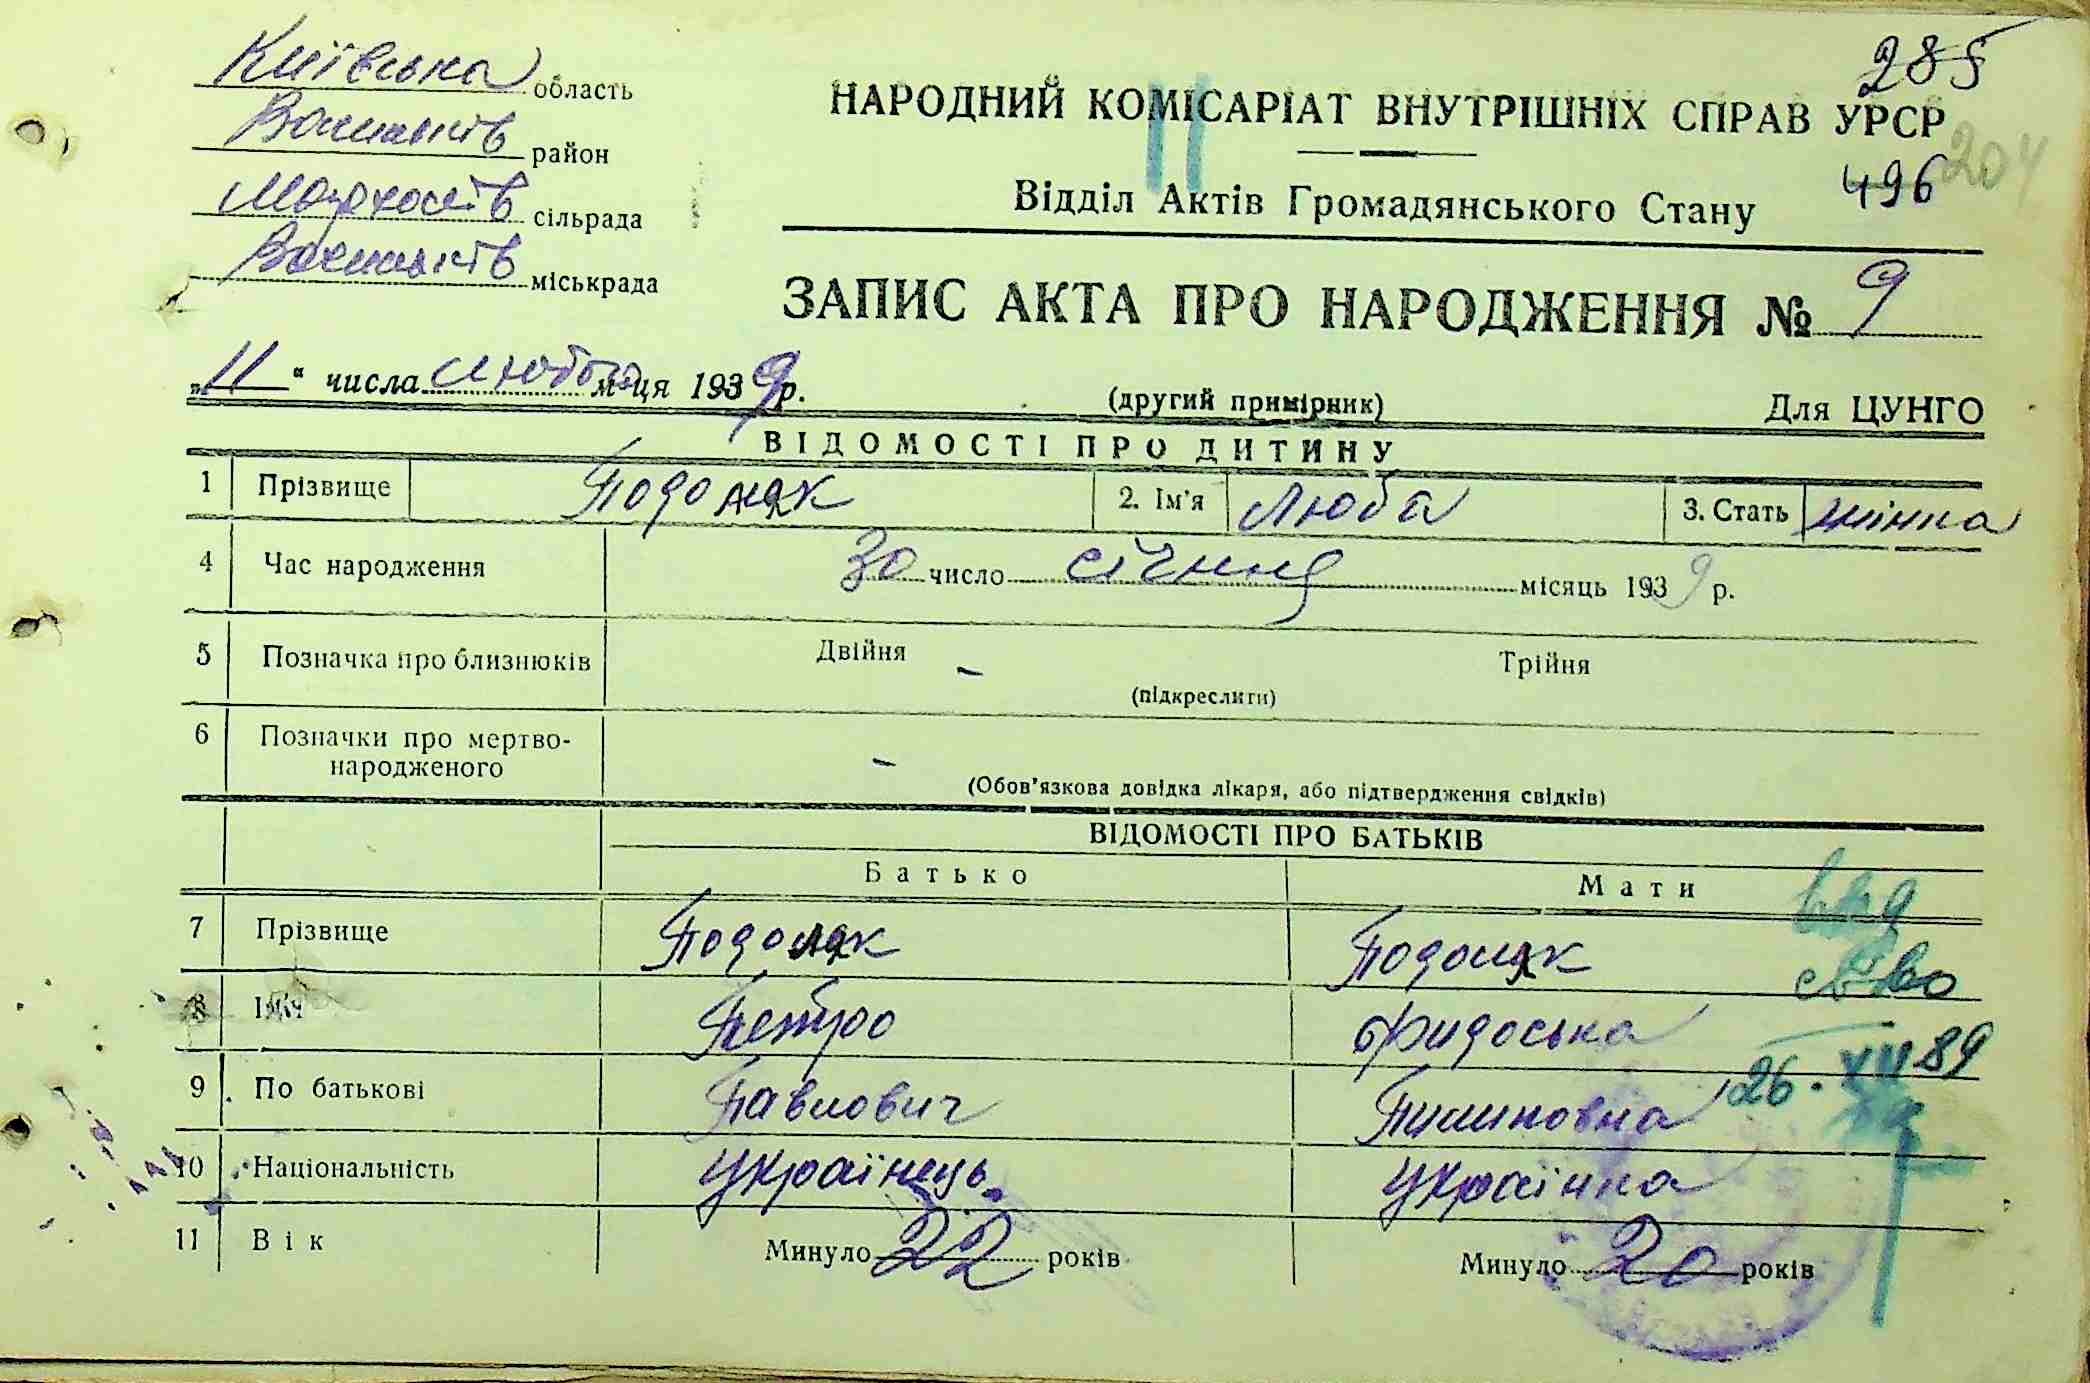 Київська область
Васильків район
сільрада
Васильків міськрада
285
НАРОДНИЙ КОМІСАРІАТ ВНУТРІШНІХ СПРАВ УРСР
204
496
Відділ Актів Громадянського Стану
ЗАПИС АКТА ПРО НАРОДЖЕННЯ № 9
„11“ числа лютого м-ця 1939 р.
(другий примірник)
Для ЦУНГО
ВІДОМОСТІ ПРО ДИТИНУ
1 Прізвище Подоляк 2. Ім'я Люба 3. Стать жінка
4 Час народження 30 число січння місяць 1939 р.
5 Позначка про близнюків Двійня - Трійня
(підкреслити)
6 Позначки про мертво-
народженого -
(Обов'язкова довідка лікаря, або підтвердження свідків)
ВІДОМОСТІ ПРО БАТЬКІВ
Батько Мати
7 Прізвище Подоляк Подоляк
8 Ім'я Петро Фидоська
9 По батькові Павлович Пилиповна
26. XII 89
10 Національність Українець Українка
11 Вік Минуло 22 років Минуло 20 років